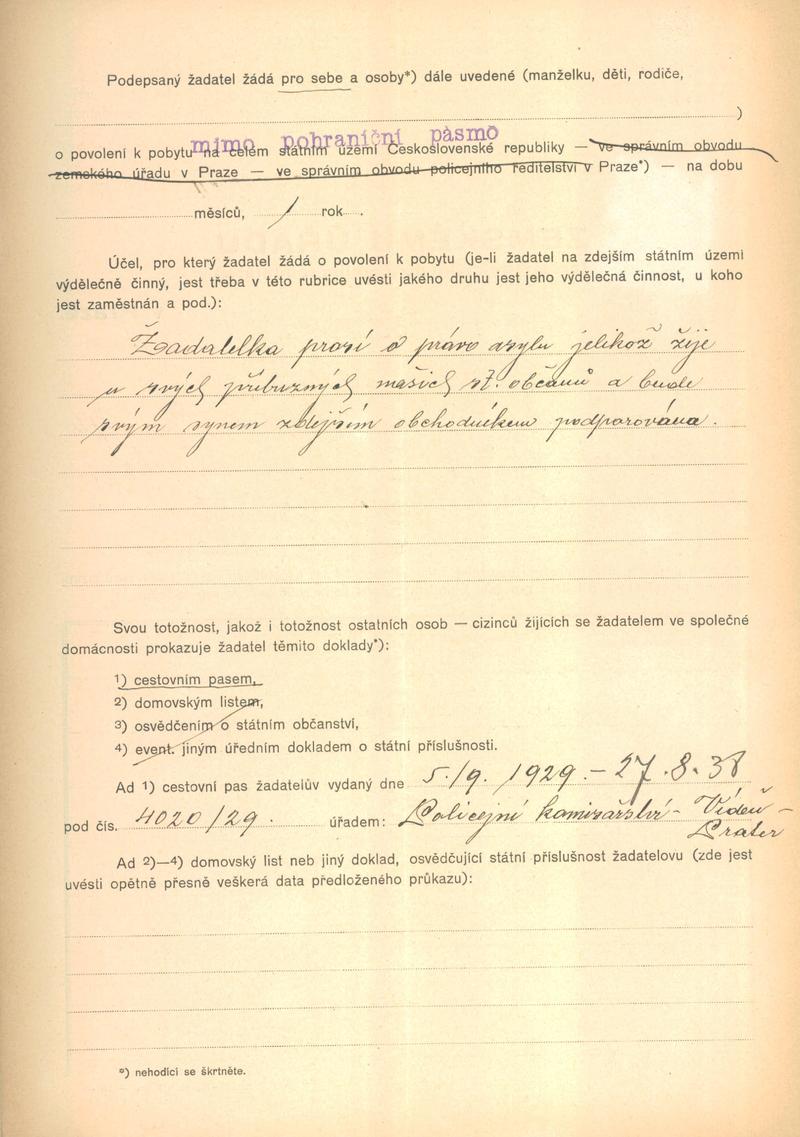 Podepsaný žadatel žádá pro sebe a osoby*) dále uvedené (manželku, děti, rodiče,
)
mimo pohraniční pásmo
o povolení k pobytu na celém státním území Československé republiky — ve správním obvodu
zemského úřadu v Praze — ve správním obvodu policejního ředitelství v Praze*) — na dobu
měsíců, 1 rok .
Účel, pro který žadatel žádá o povolení k pobytu (je-li žadatel na zdejším státním území
výdělečně činný, jest třeba v této rubrice uvésti jakého druhu jest jeho výdělečná činnost, u koho
jest zaměstnán a pod.):
Žadatelka prosí o právo asylu jelikož žije
u svých příbuzných našich st. občanů a bude
svým synem zdejším obchodníkem podporována.
Svou totožnost, jakož i totožnost ostatních osob — cizinců žijících se žadatelem ve společné
domácnosti prokazuje žadatel těmito doklady*):
1) cestovním pasem,
2) domovským listem,
3) osvědčením o státním občanství,
4) event. jiným úředním dokladem o státní příslušnosti.
Ad 1) cestovní pas žadatelův vydaný dne 5./9. 1929. - 27.8.38
pod čís. 4020/29. úřadem: Policejní komisařství - Vídeň -
Prater
Ad 2)—4) domovský list neb jiný doklad, osvědčující státní příslušnost žadatelovu (zde jest
uvésti opětně přesně veškerá data předloženého průkazu):
*) nehodící se škrtněte.